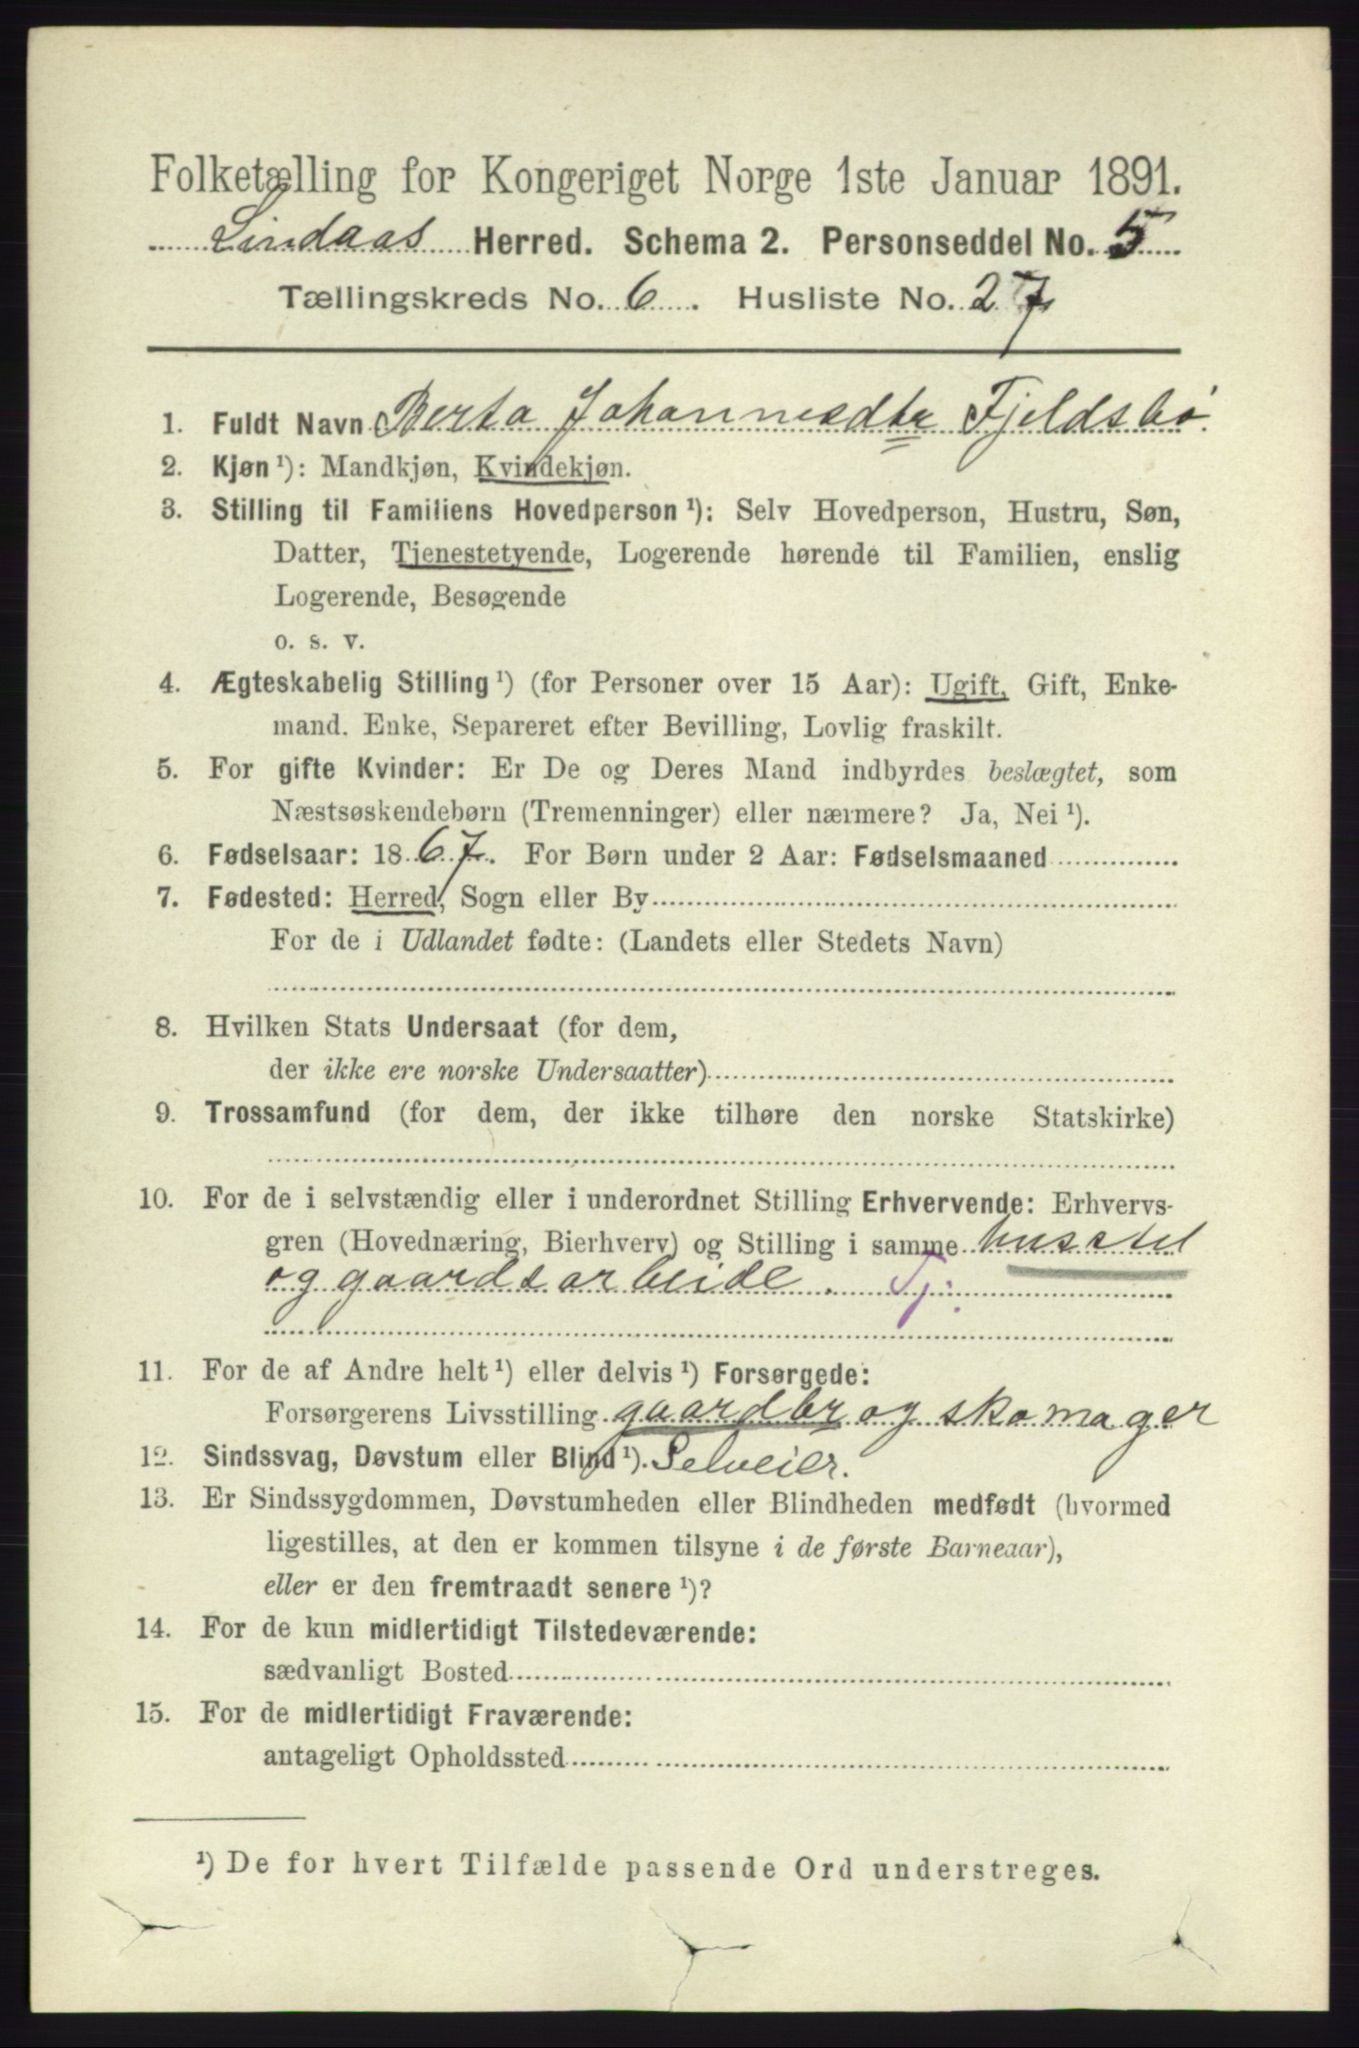 Folketælling for Kongeriget Norge 1ste Januar 1891.
Lindaas Herred. Schema 2. Personseddel No. 5
Tællingskreds No. 6. Husliste No. 27
1. Fuldt Navn Berta Johannesdtr Fjeldsbø
2. Kjøn ¹): Mandkjøn, Kvindekjøn.
3. Stilling til Familiens Hovedperson ¹): Selv Hovedperson, Hustru, Søn,
Datter, Tjenestetyende, Logerende hørende til Familien, enslig
Logerende, Besøgende
o. s. v.
4. Ægteskabelig Stilling ¹) (for Personer over 15 Aar): Ugift, Gift, Enke-
mand. Enke, Separeret efter Bevilling, Lovlig fraskilt.
5. For gifte Kvinder: Er De og Deres Mand indbyrdes beslægtet, som
Næstsøskendebørn (Tremenninger) eller nærmere? Ja, Nei ¹).
6. Fødselsaar: 1867. For Børn under 2 Aar: Fødselsmaaned
7. Fødested: Herred, Sogn eller By
For de i Udlandet fødte: (Landets eller Stedets Navn)
8. Hvilken Stats Undersaat (for dem,
der ikke ere norske Undersaatter)
9. Trossamfund (for dem, der ikke tilhøre den norske Statskirke)
10. For de i selvstændig eller i underordnet Stilling Erhvervende: Erhvervs-
gren (Hovednæring, Bierhverv) og Stilling i samme husstel
og gaardsarbeide. Tj.
11. For de af Andre helt ¹) eller delvis ¹) Forsørgede:
Forsørgerens Livsstilling gaardbr og skomager
12. Sindssvag, Døvstum eller Blind ¹). Selveier.
13. Er Sindssygdommen, Døvstumheden eller Blindheden medfødt (hvormed
ligestilles, at den er kommen tilsyne i de første Barneaar),
eller er den fremtraadt senere ¹)?
14. For de kun midlertidigt Tilstedeværende:
sædvanligt Bosted
15. For de midlertidigt Fraværende:
antageligt Opholdssted
¹) De for hvert Tilfælde passende Ord understreges.